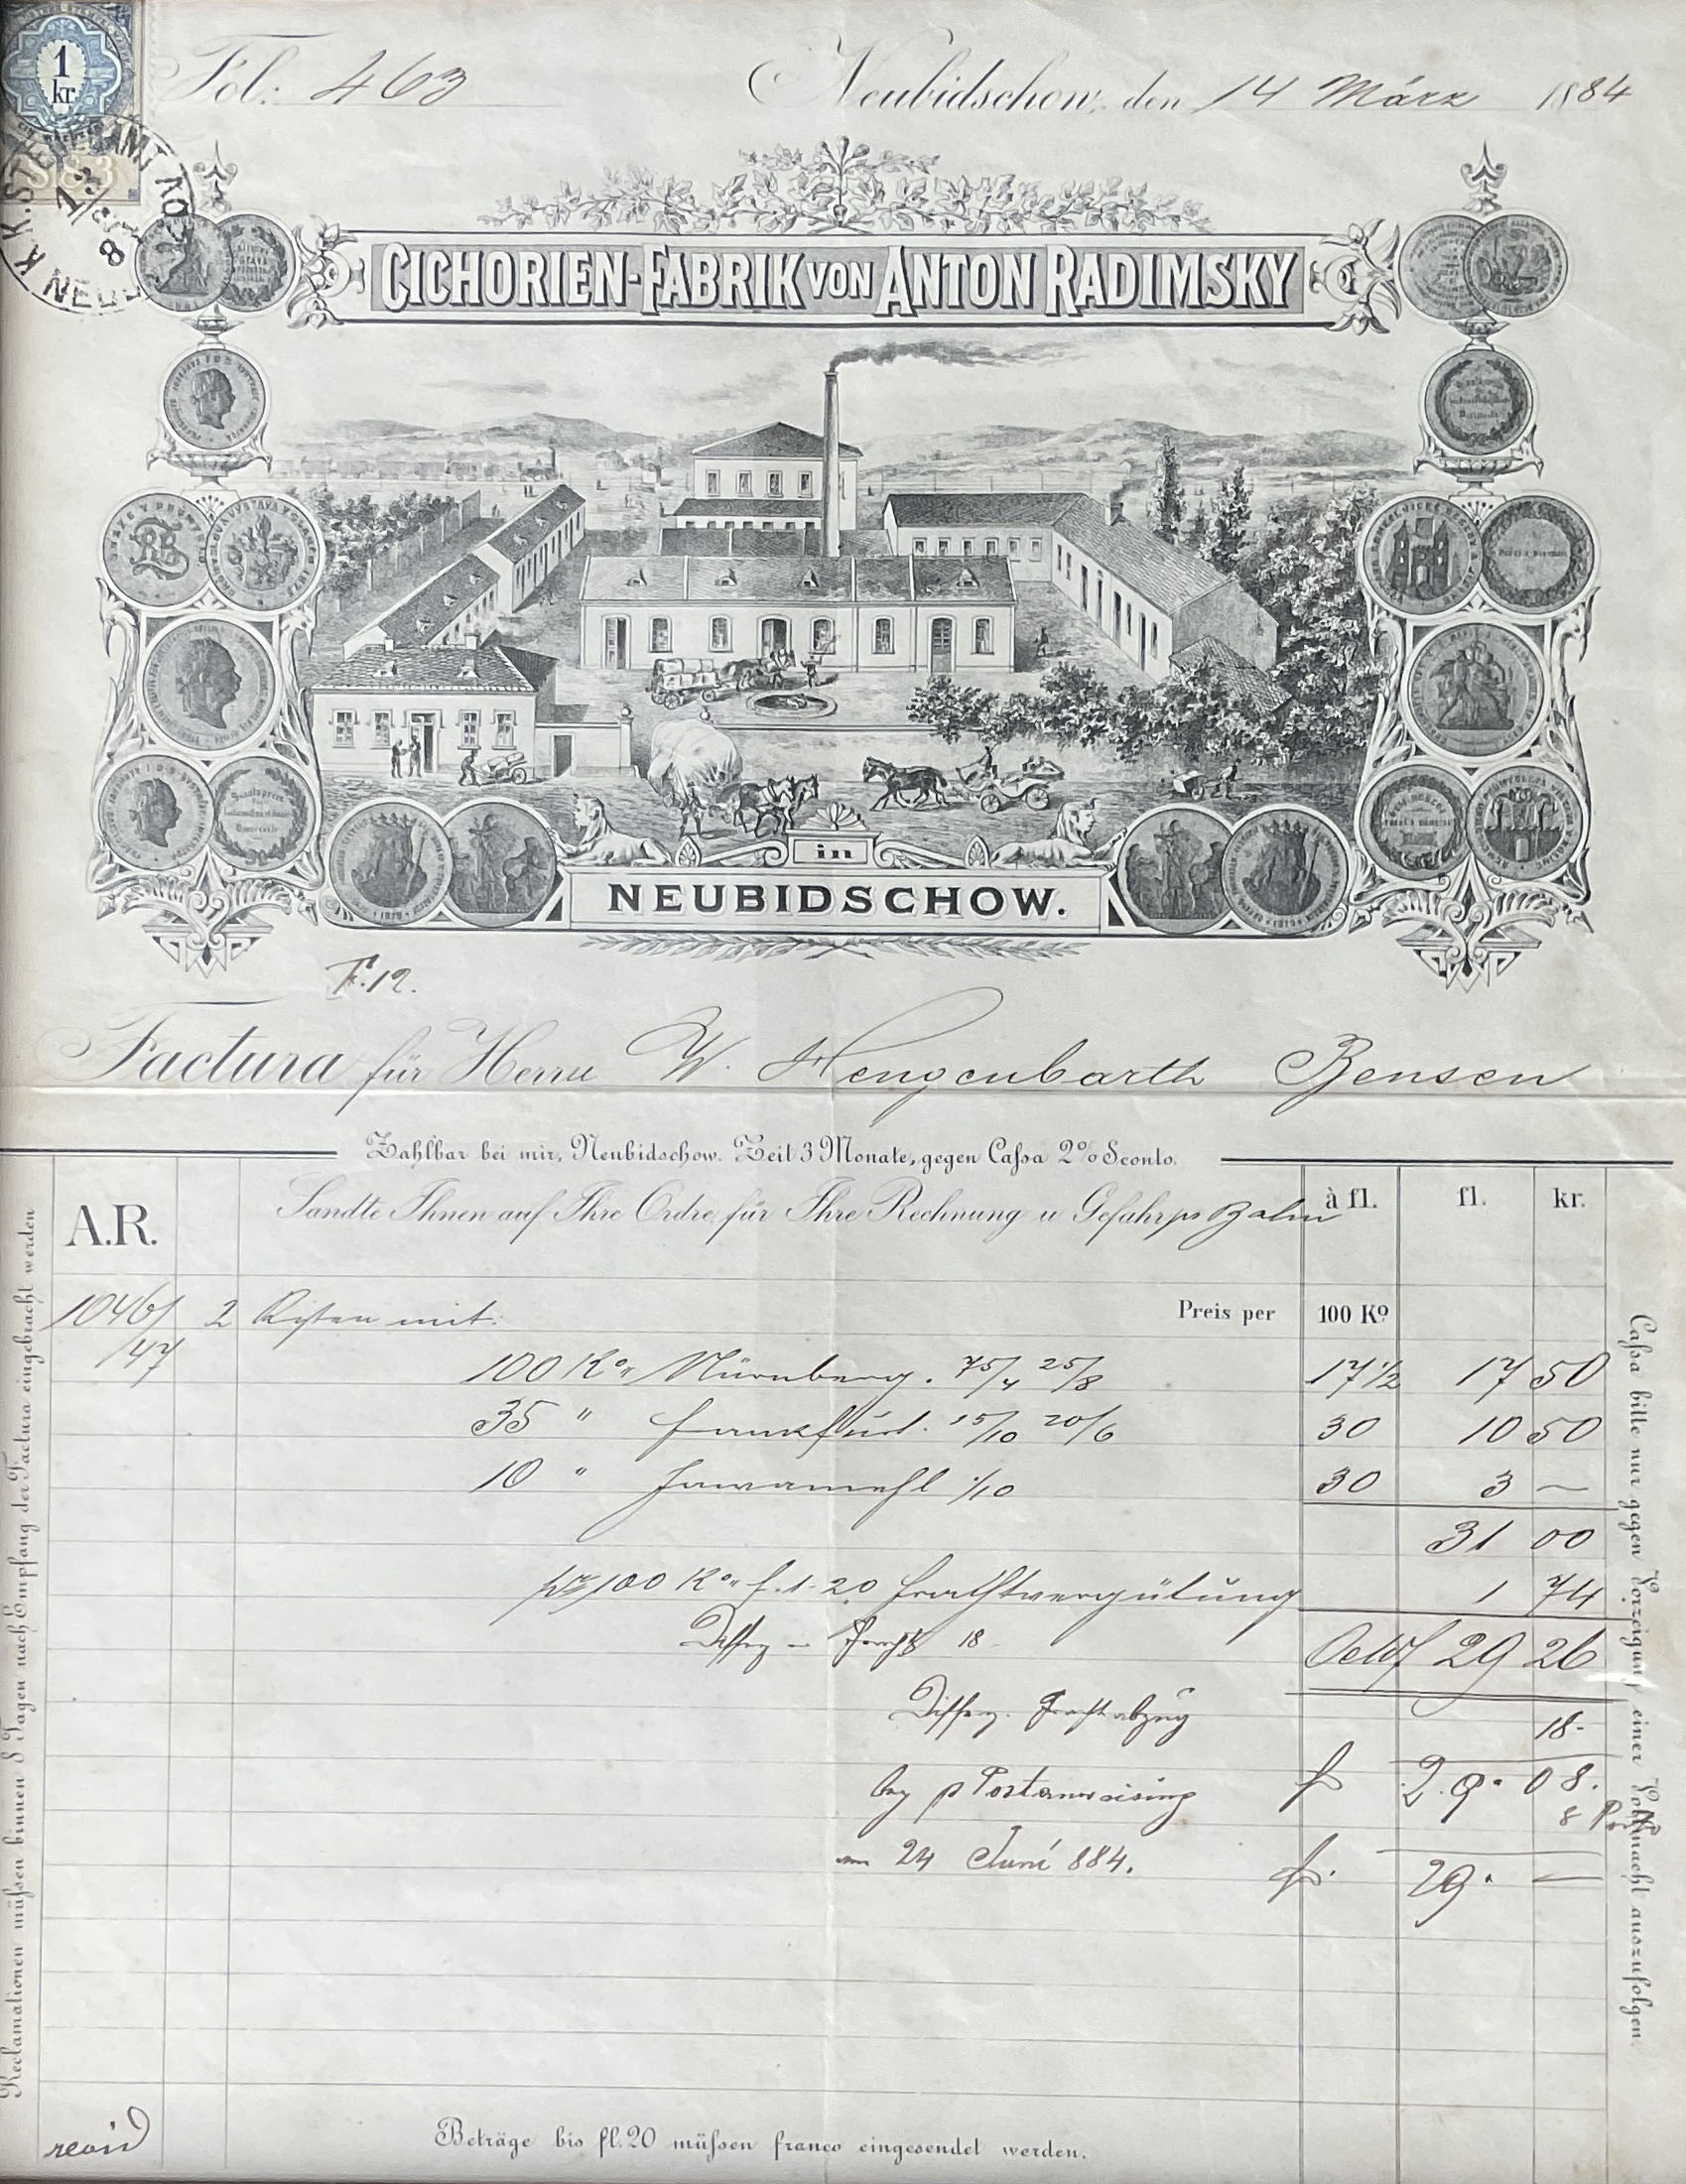 1
kr.
Fol: 463
Neubidschow, den 14 März 1884
K.K. STEUERAMT
NEU
CICHORIEN-FABRIK VON ANTON RADIMSKY
in
NEUBIDSCHOW.
F. 12.
Factura für Herrn W. Hengenbarth Bensen
Zahlbar bei mir, Neubidschow. Zeit 3 Monate, gegen Cassa 2% Sconto.
A.R. Sandte Ihnen auf Ihre Ordre, für Ihre Rechnung u Gefahr pr Bahn à fl. fl. kr.
1046/ 2 Kisten mit: Preis per 100 Ko
/47
100 Ko Nürnberg. 75/4 25/8 17 1/2 17 50
35 " Frankfurt. 15/10 20/6 30 10 50
10 " Javamehl 1/10 30 3 —
31 00
pr 100 Ko f. 1.20 Frachtvergütung 1 74
18 29 26
Differz. Frachtabzug 18-
p Postanweisung f 29. 08.
8 Porto
am 24 Juni 884. f. 29. —
Reclamationen müssen binnen 8 Tagen nach Empfang der Factura eingebracht werden
Cassa bitte nur gegen Vorzeigung einer Vollmacht auszufolgen.
Beträge bis fl. 20 müssen franco eingesendet werden.